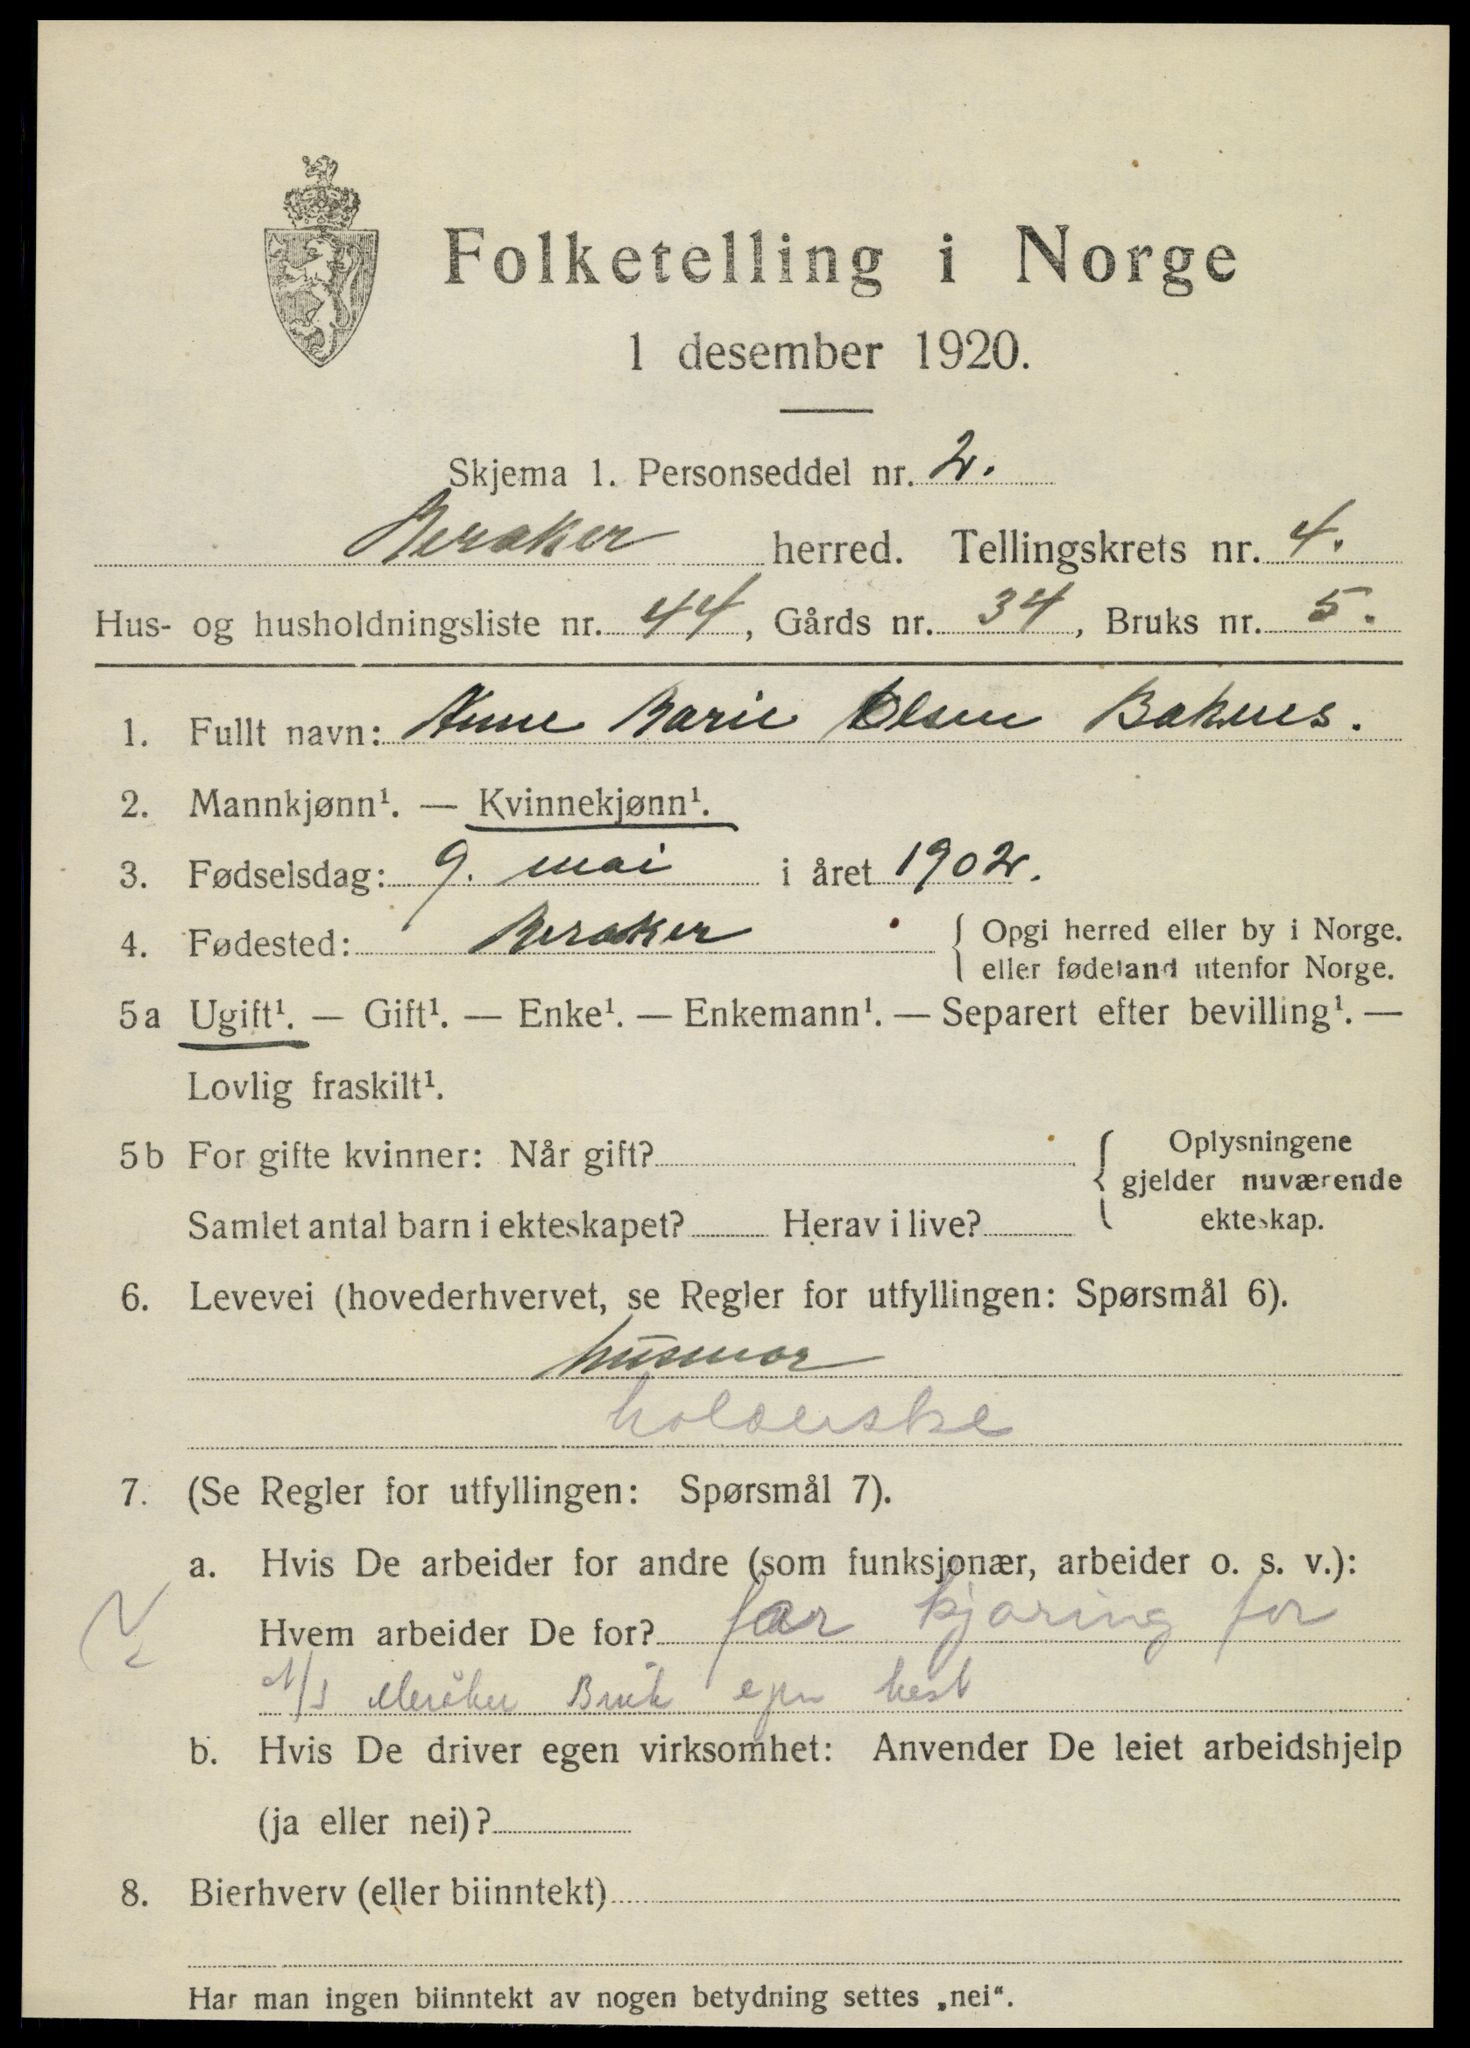 Folketelling i Norge
1 desember 1920.
Skjema 1. Personseddel nr. 2.
Meraker herred. Tellingskrets nr. 4.
Hus- og husholdningsliste nr. 44, Gårds nr. 34, Bruks nr. 5.
1. Fullt navn: Anne Marie Olsen Baknes.
2. Mannkjønn¹. — Kvinnekjønn¹.
3. Fødselsdag: 9. mai i året 1902.
4. Fødested: Meraker { Opgi herred eller by i Norge.
eller fødeland utenfor Norge.
5a Ugift¹. — Gift¹. — Enke¹. — Enkemann¹. — Separert efter bevilling¹. —
Lovlig fraskilt¹.
5b For gifte kvinner: Når gift? { Oplysningene
gjelder nuværende
ekteskap.
Samlet antal barn i ekteskapet? Herav i live?
6. Levevei (hovederhvervet, se Regler for utfyllingen: Spørsmål 6).
husmor
holderske
7. (Se Regler for utfyllingen: Spørsmål 7).
a. Hvis De arbeider for andre (som funksjonær, arbeider o. s. v.):
Hvem arbeider De for? far kjøring for
A/S Meråker Bruk egen hest
b. Hvis De driver egen virksomhet: Anvender De leiet arbeidshjelp
(ja eller nei)?
8. Bierhverv (eller biinntekt)
Har man ingen biinntekt av nogen betydning settes „nei“.